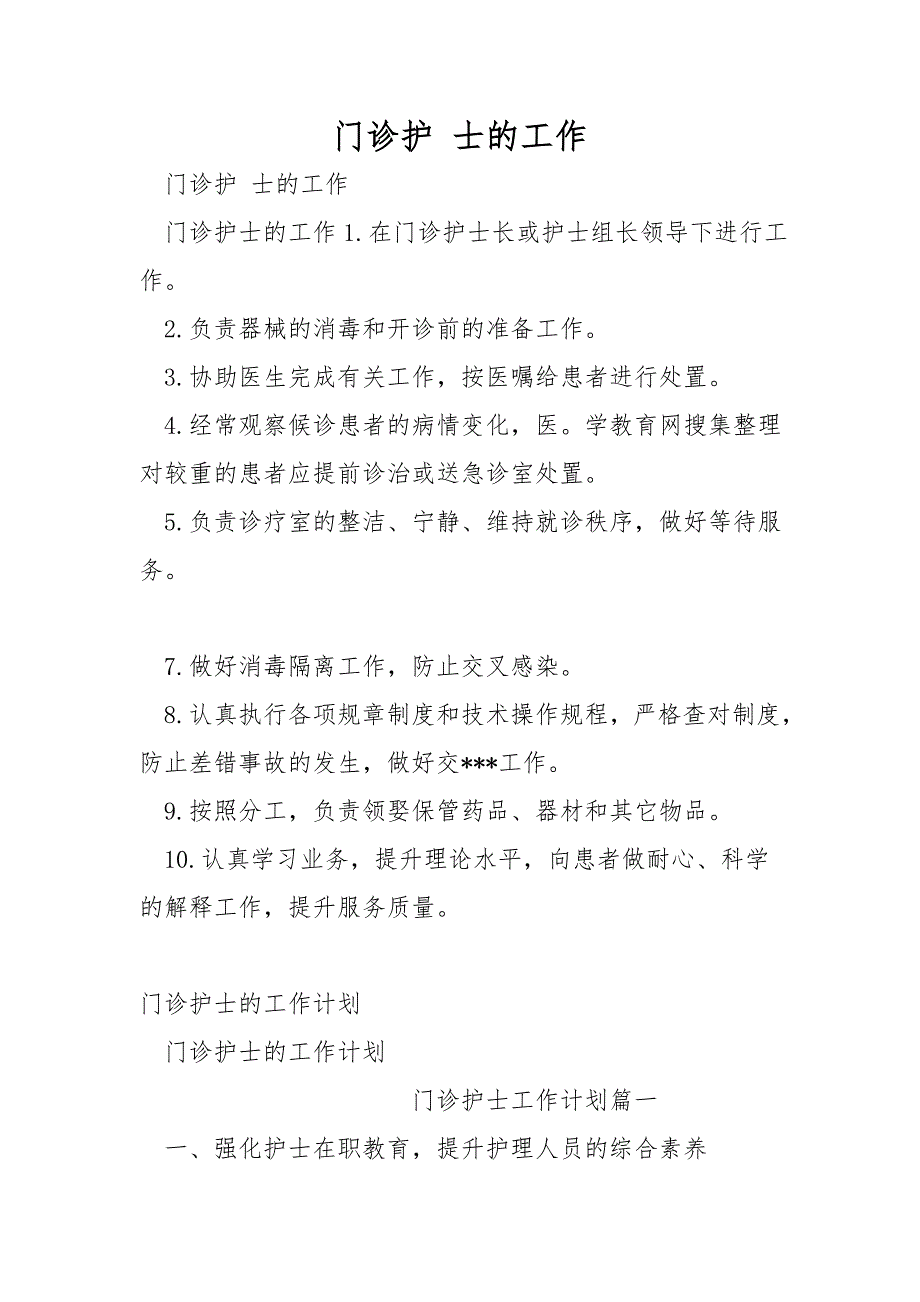 门诊护 士的工作
门诊护 士的工作
门诊护士的工作 1.在门诊护士长或护士组长领导下进行工
作。
2.负责器械的消毒和开诊前的准备工作。
3.协助医生完成有关工作，按医嘱给患者进行处置。
4.经常观察候诊患者的病情变化，医。学教育网搜集整理
对较重的患者应提前诊治或送急诊室处置。
5.负责诊疗室的整洁、宁静、维持就诊秩序，做好等待服
务。
7.做好消毒隔离工作，防止交叉感染。
8.认真执行各项规章制度和技术操作规程，严格查对制度，
防止差错事故的发生，做好交***工作。
9.按照分工，负责领娶保管药品、器材和其它物品。
10.认真学习业务，提升理论水平，向患者做耐心、科学
的解释工作，提升服务质量。
门诊护士的工作计划
门诊护士的工作计划
门诊护士工作计划篇一
一、强化护士在职教育，提升护理人员的综合素养